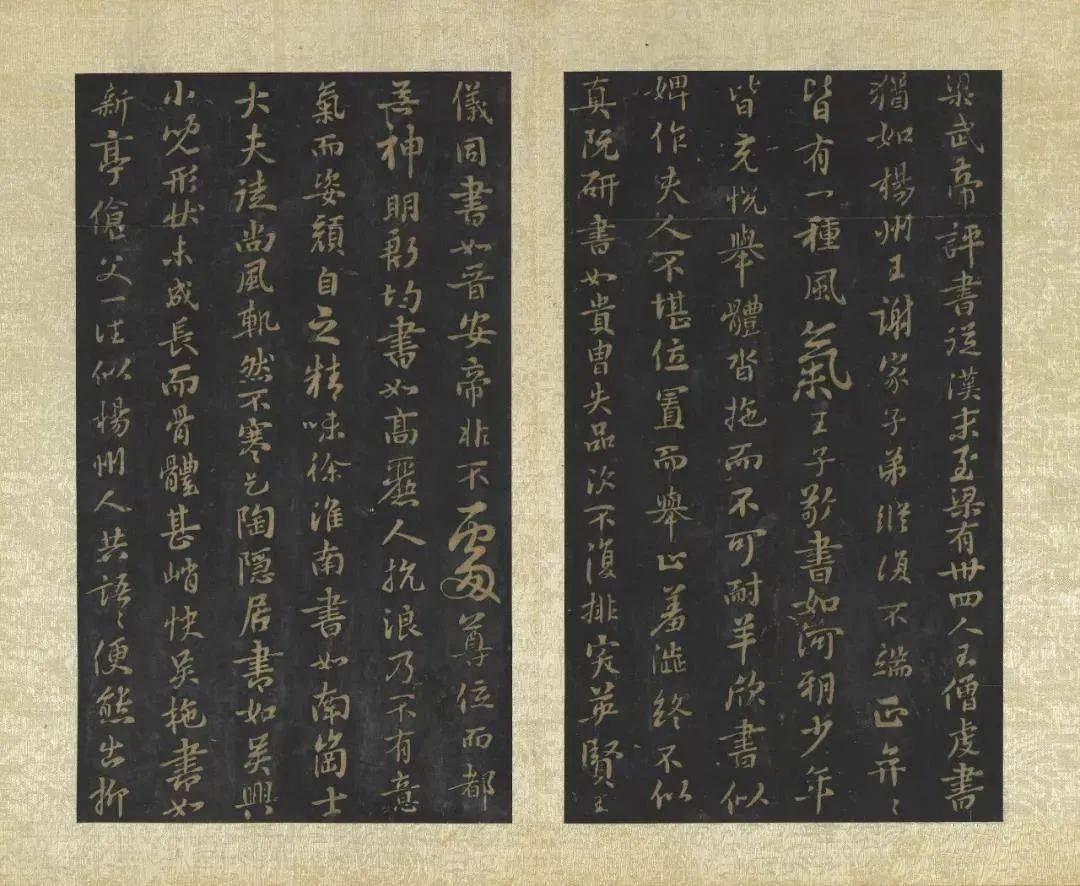 梁武帝評書從漢末至梁有卅四人王僧虔書
猶如楊州王謝家子弟縱復不端正弈〻
皆有一種風氣王子敬書如河朔少年
皆充悅舉體沓拖而不可耐羊欣書似
婢作夫人不堪位置而舉止羞澁終不似
真阮研書如貴胄失品次不復排突英賢王
儀同書如晉安帝非不處尊位而都
無神明庾肩吾書如
氣而姿顏自之精味徐淮南書如南崗士
大夫徒尚風軌然不寒乞陶隱居書如吳興
小兒形狀未成長而骨體甚峭快吳施書如
新亭傖父一往似楊州人共語〻便態出柳